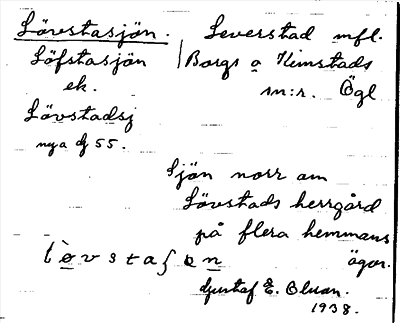 Lövstasjön. Leverstad mfl.
Löfstasjön Borgs o Kimstads
ek. sn:r. Ögl
Lövstadsj
nya dj 55.
Sjön norr om
Lövstads herrgård
på flera hemmans
ägor.
Gustaf E. Bluan.
1938.